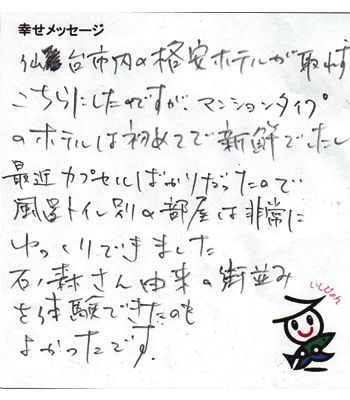 幸せメッセージ
仙台市内の格安ホテルが取れず
こちらにしたのですが、マンションタイプ
のホテルは初めてで新鮮でした
最近カプセルばかりだったので
風呂トイレ別の部屋は非常に
ゆっくりできました
石ノ森さん由来の街並み
を体験できたのも
よかったです。
いしぴょん